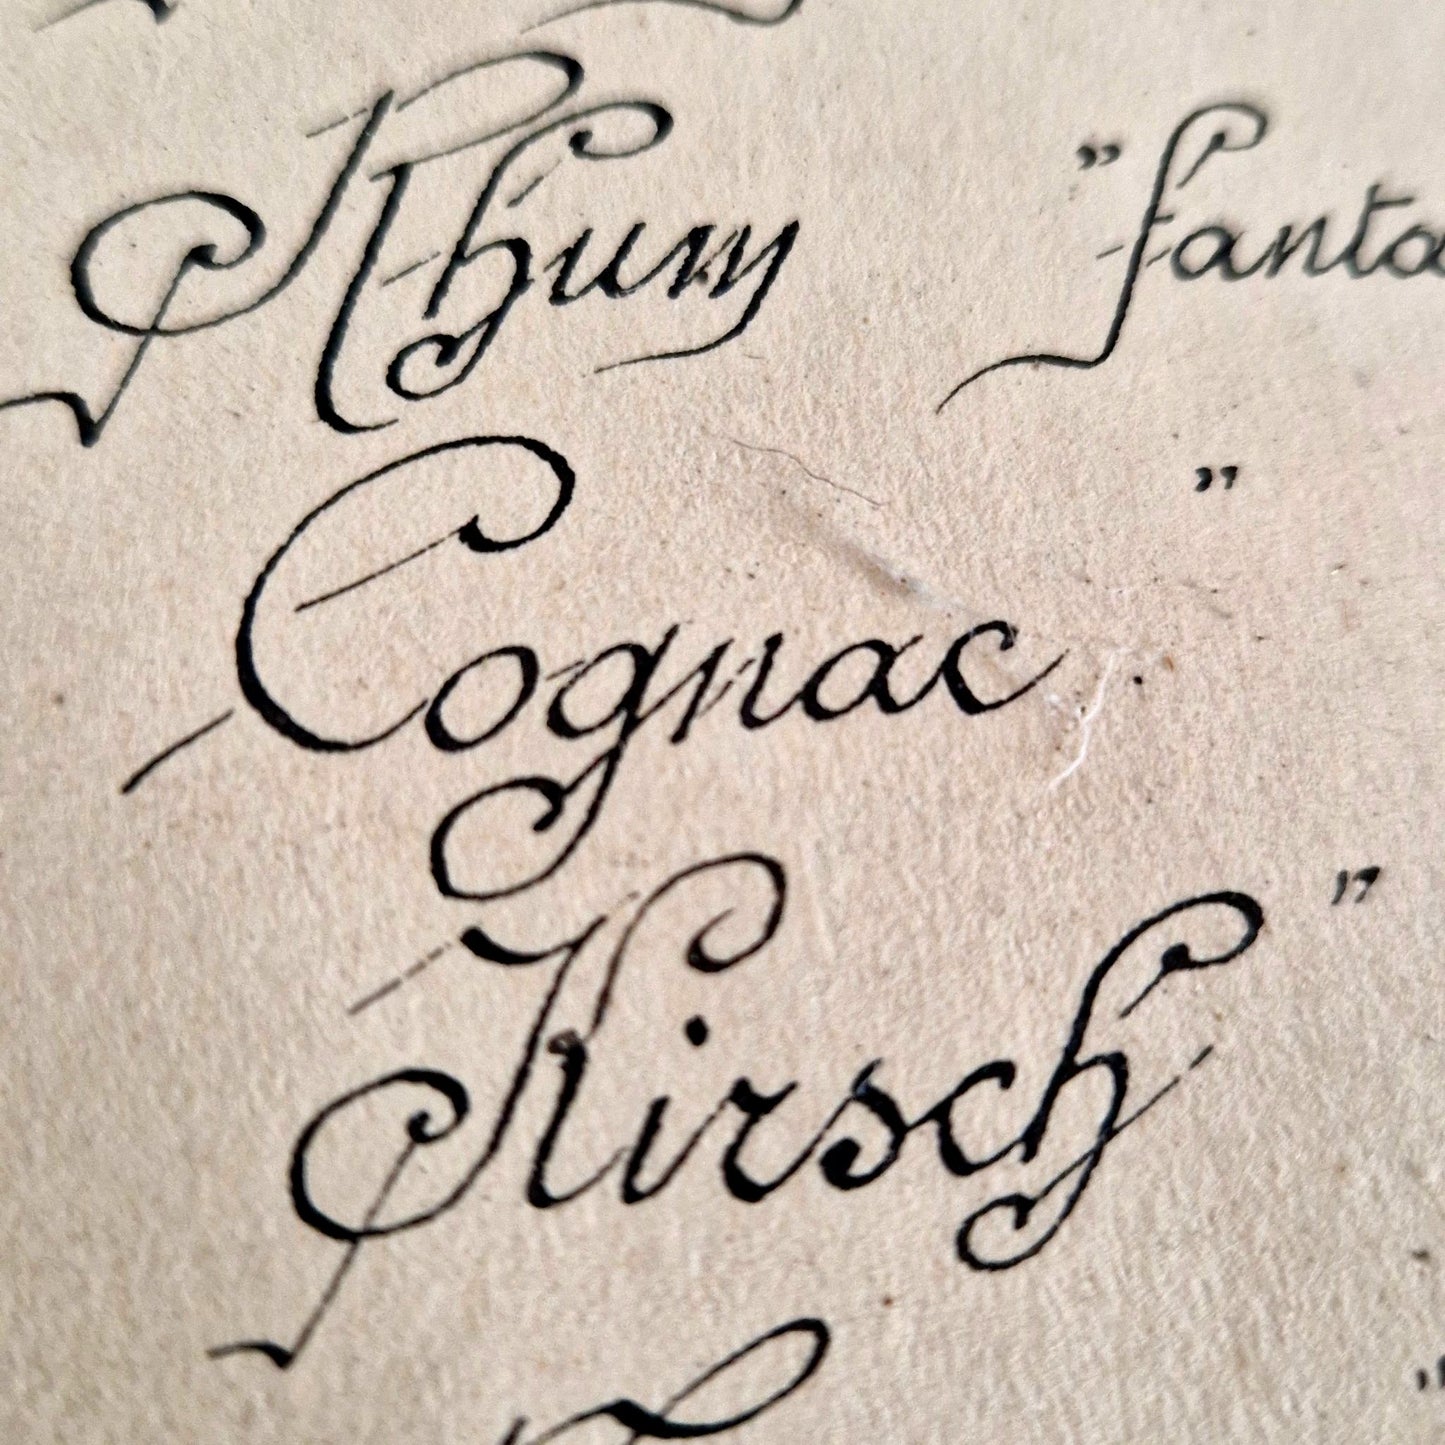 Rhum " fanta
Cognac "
Kirsch "
"